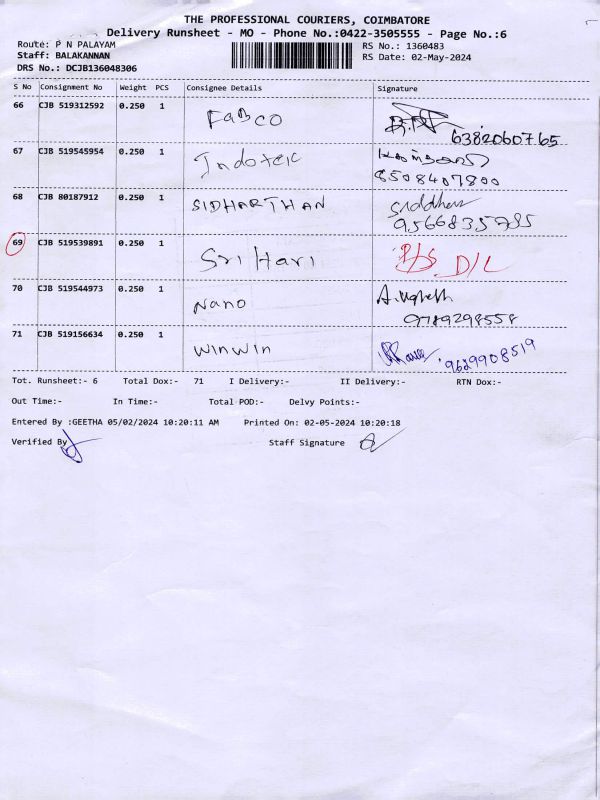 THE PROFESSIONAL COURIERS, COIMBATORE
Delivery Runsheet - MO - Phone No.:0422-3505555 - Page No.:6
Route: P N PALAYAM
RS No.: 1360483
Staff: BALAKANNAN
RS Date: 02-May-2024
DRS No.: DCJB136048306
S No Consignment No Weight PCS Consignee Details Signature
66 CJB 519312592 0.250 1 FaBco
6382060765
67 CJB 519545954 0.250 1 Indotek
8508407800
68 CJB 80187912 0.250 1 SIDHARTHAN Siddhar
9566835785
69 CJB 519539891 0.250 1 Sri Hari D/L
70 CJB 519544973 0.250 1 Nano
9789298558
71 CJB 519156634 0.250 1 WINWIN 9629908519
Tot. Runsheet:- 6 Total Dox:- 71 I Delivery:- II Delivery:- RTN Dox:-
Out Time:- In Time:- Total POD:- Delvy Points:-
Entered By :GEETHA 05/02/2024 10:20:11 AM Printed On: 02-05-2024 10:20:18
Verified By Staff Signature